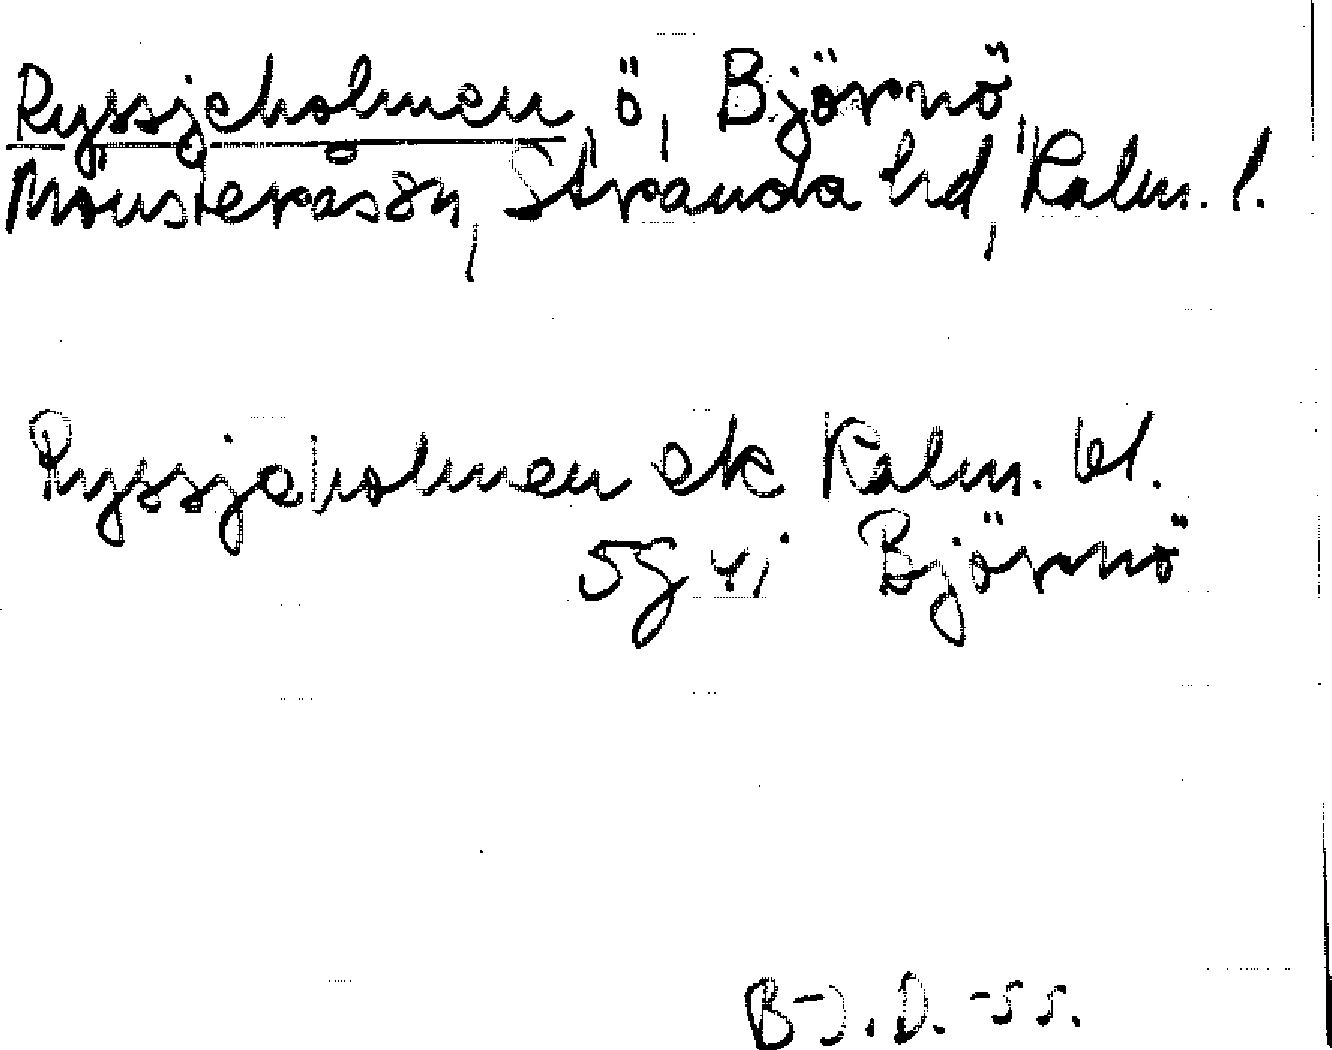 Ryssjeholmen, ö, Björnö,
Mönsterås sn, Stranda hd, Kalm. l.
Ryssjeholmen ek Kalm. bl.
5g vi Björnö
B-J. D. -55.